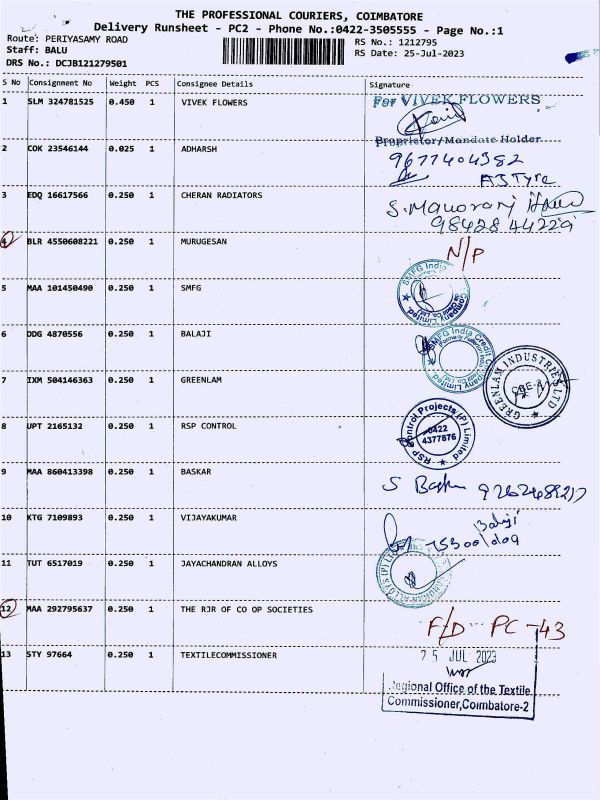 THE PROFESSIONAL COURIERS, COIMBATORE
Delivery Runsheet - PC2 - Phone No.:0422-3505555 - Page No.:1
Route: PERIYASAMY ROAD RS No.: 1212795
Staff: BALU RS Date: 25-Jul-2023
DRS No.: DCJB121279501
S No Consignment No Weight PCS Consignee Details Signature
1 SLM 324781525 0.450 1 VIVEK FLOWERS For VIVEK FLOWERS
Proprietor/Mandate Holder
2 COK 23546144 0.025 1 ADHARSH 9677404382
3 EDQ 16617566 0.250 1 CHERAN RADIATORS S. Manoranj
98428 44229
4 BLR 4550608221 0.250 1 MURUGESAN N/P
5 MAA 101450490 0.250 1 SMFG SMFG India Company Limited
6 DDG 4870556 0.250 1 BALAJI SMFG India Credit Company Limited
7 IXM 504146363 0.250 1 GREENLAM GREENLAM INDUSTRIES LTD CBE
8 UPT 2165132 0.250 1 RSP CONTROL RSP Control Projects (P) Limited 0422 4377876
9 MAA 860413398 0.250 1 BASKAR S
10 KTG 7109893 0.250 1 VIJAYAKUMAR Balaji
11 TUT 6517019 0.250 1 JAYACHANDRAN ALLOYS ALLOYS (P)
12 MAA 292795637 0.250 1 THE RJR OF CO OP SOCIETIES F/D PC-43
13 STY 97664 0.250 1 TEXTILECOMMISSIONER 25 JUL 2023
Regional Office of the Textile
Commissioner, Coimbatore-2